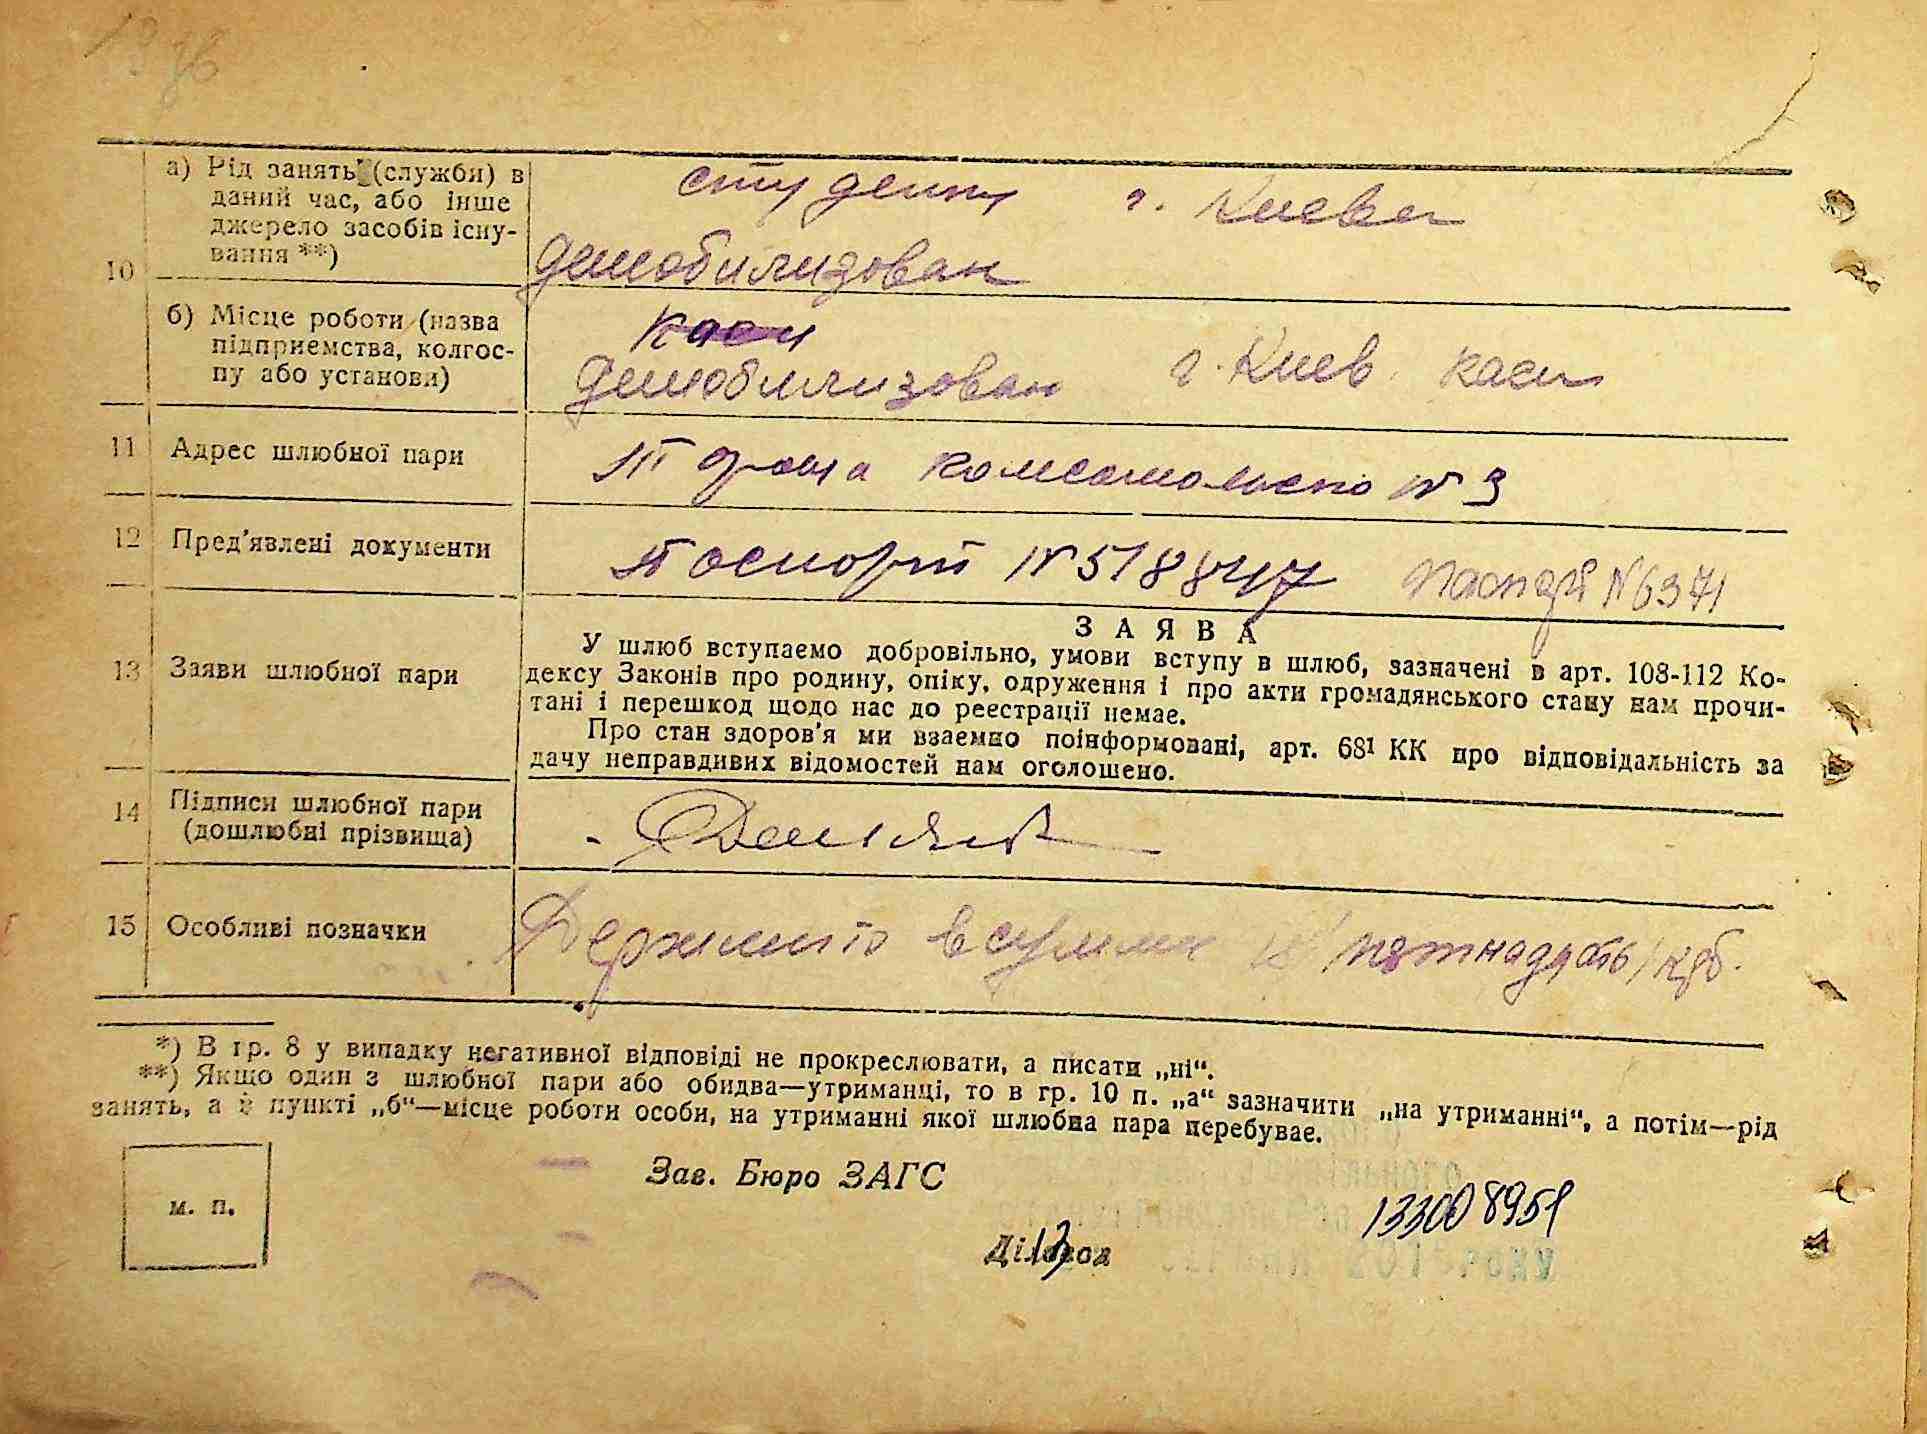 10
а) Рід занять (служби) в
даний час, або інше
джерело засобів існу-
вання **)
студент г. Киева
демобилизован
б) Місце роботи (назва
підприємства, колгос-
пу або установи)
каси
демобилизован г. Киев. каси
11 Адрес шлюбної пари
комсомольско № 3
12 Пред'явлені документи
Паспорт № 518847 паспорт № 6371
13 Заяви шлюбної пари
ЗАЯВА
У шлюб вступаємо добровільно, умови вступу в шлюб, зазначені в арт. 108-112 Ко-
дексу Законів про родину, опіку, одруження і про акти громадянського стану нам прочи-
тані і перешкод щодо нас до реєстрації немає.
Про стан здоров'я ми взаємно поінформовані, арт. 68¹ КК про відповідальність за
дачу неправдивих відомостей нам оголошено.
14 Підписи шлюбної пари
(дошлюбні прізвища)
15 Особливі позначки
Держмито в сумми 15 (пятнадцать) крб.
*) В гр. 8 у випадку негативної відповіді не прокреслювати, а писати „ні“.
**) Якщо один з шлюбної пари або обидва—утриманці, то в гр. 10 п. „а“ зазначити „на утриманні“, а потім—рід
занять, а в пункті „б“—місце роботи особи, на утриманні якої шлюбна пара перебуває.
м. п.
Зав. Бюро ЗАГС
Діловод
13300 8959